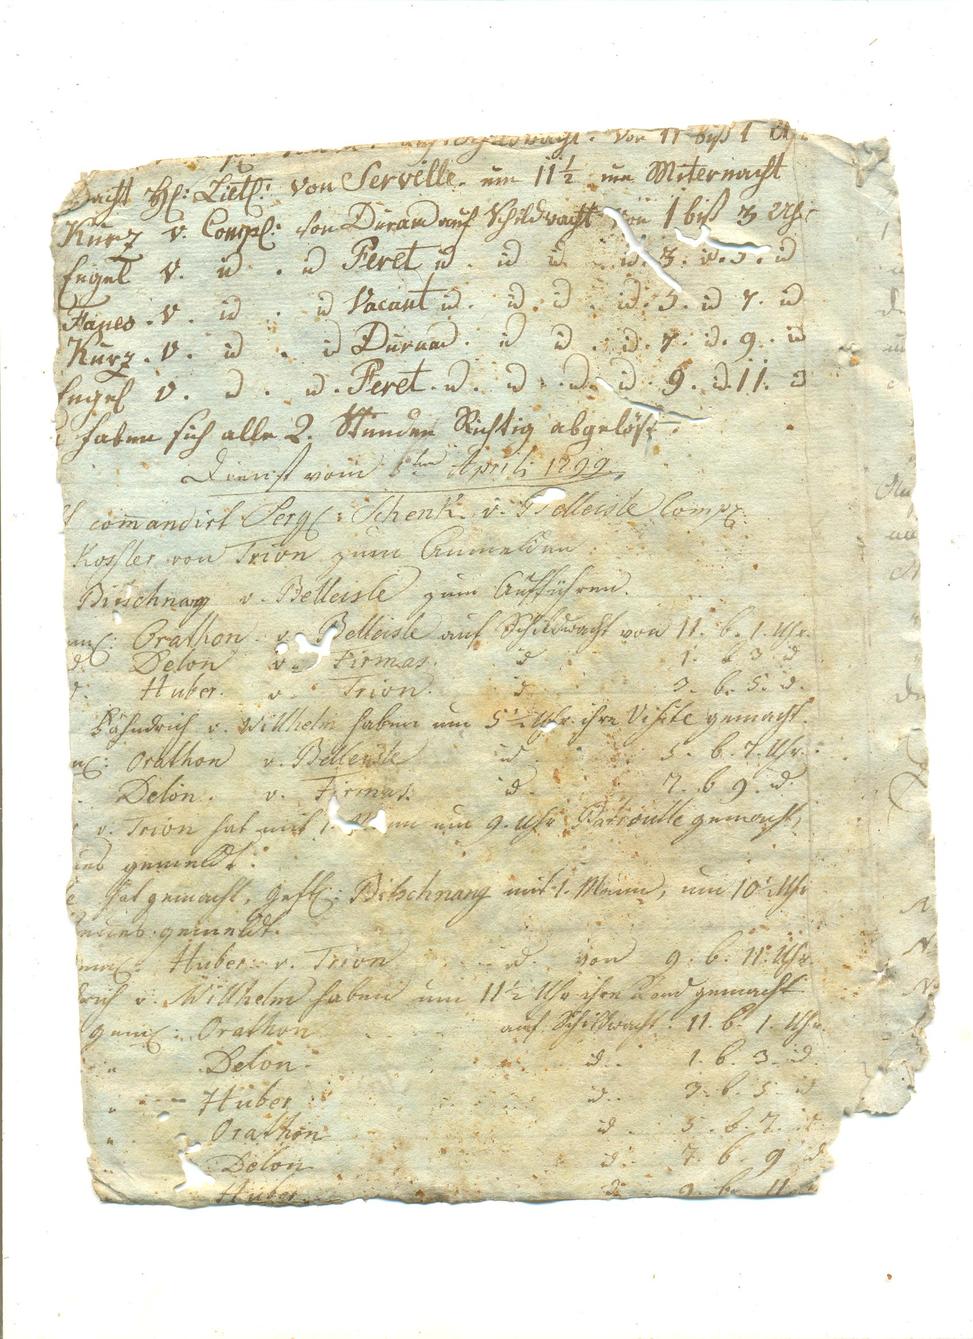 auf Schildwacht. von 11 biß 1 U
acht H: Lieut: von Serville um 11½ um Miternacht
Kurz v. Comp: von Durand auf Schildwacht von 1 biß 3 Uhr
Engel v. id . id Feret id. id id id. 3. id. 5. id
Fapes. v. id . id Vacant id. id id id. 5. id 7. id
Kurz. v. id . id Durand. id id . id. 7. id. 9. id
Engel v. id. id. Feret. id. id . id. id 9. id. 11. id
haben sich alle 2. Stunden Richtig abgelößt.
Dienst vom 5ten April 1799.
comandirt Serg: Schenk v. Belleisle Comp.
Koshler von Trion zum Anmelden
Bitschnag v. Belleisle zum Aufführen.
Orathon v. Belleisle auf Schildwacht von 11. b. 1. Uhr.
d. Delon v. Firmas. d 1. b 3 d
Huber. v. Trion. d. 3. b. 5. d.
Fähndrich v. Willhelm haben um 5½ Uhr ihre Visite gemacht.
Orathon v. Belleisle id 5. b. 7. Uhr.
Delon. v. Firmas. d. 7. b 9. d.
v. Trion hat mit 1. Mann um 9. Uhr Patroulle gemacht,
gemeldt.
hat gemacht, Gefr: Bitschnang mit 1. Mann, um 10 Uhr
neues gemeldt.
Huber v. Trion d. von 9. b. 11. Uhr.
drich v. Willhelm haben um 11½ Uhr ihre Rond gemacht
gem: Orathon auf Schildwacht. 11. b. 1. Uhr.
" Delon. d. 1. b. 3. d
" Huber d. 3. b. 5 d
" Orathon d 5. b. 7. d
Delon d. 7. b. 9 d
Huber d. 9. b. 11.